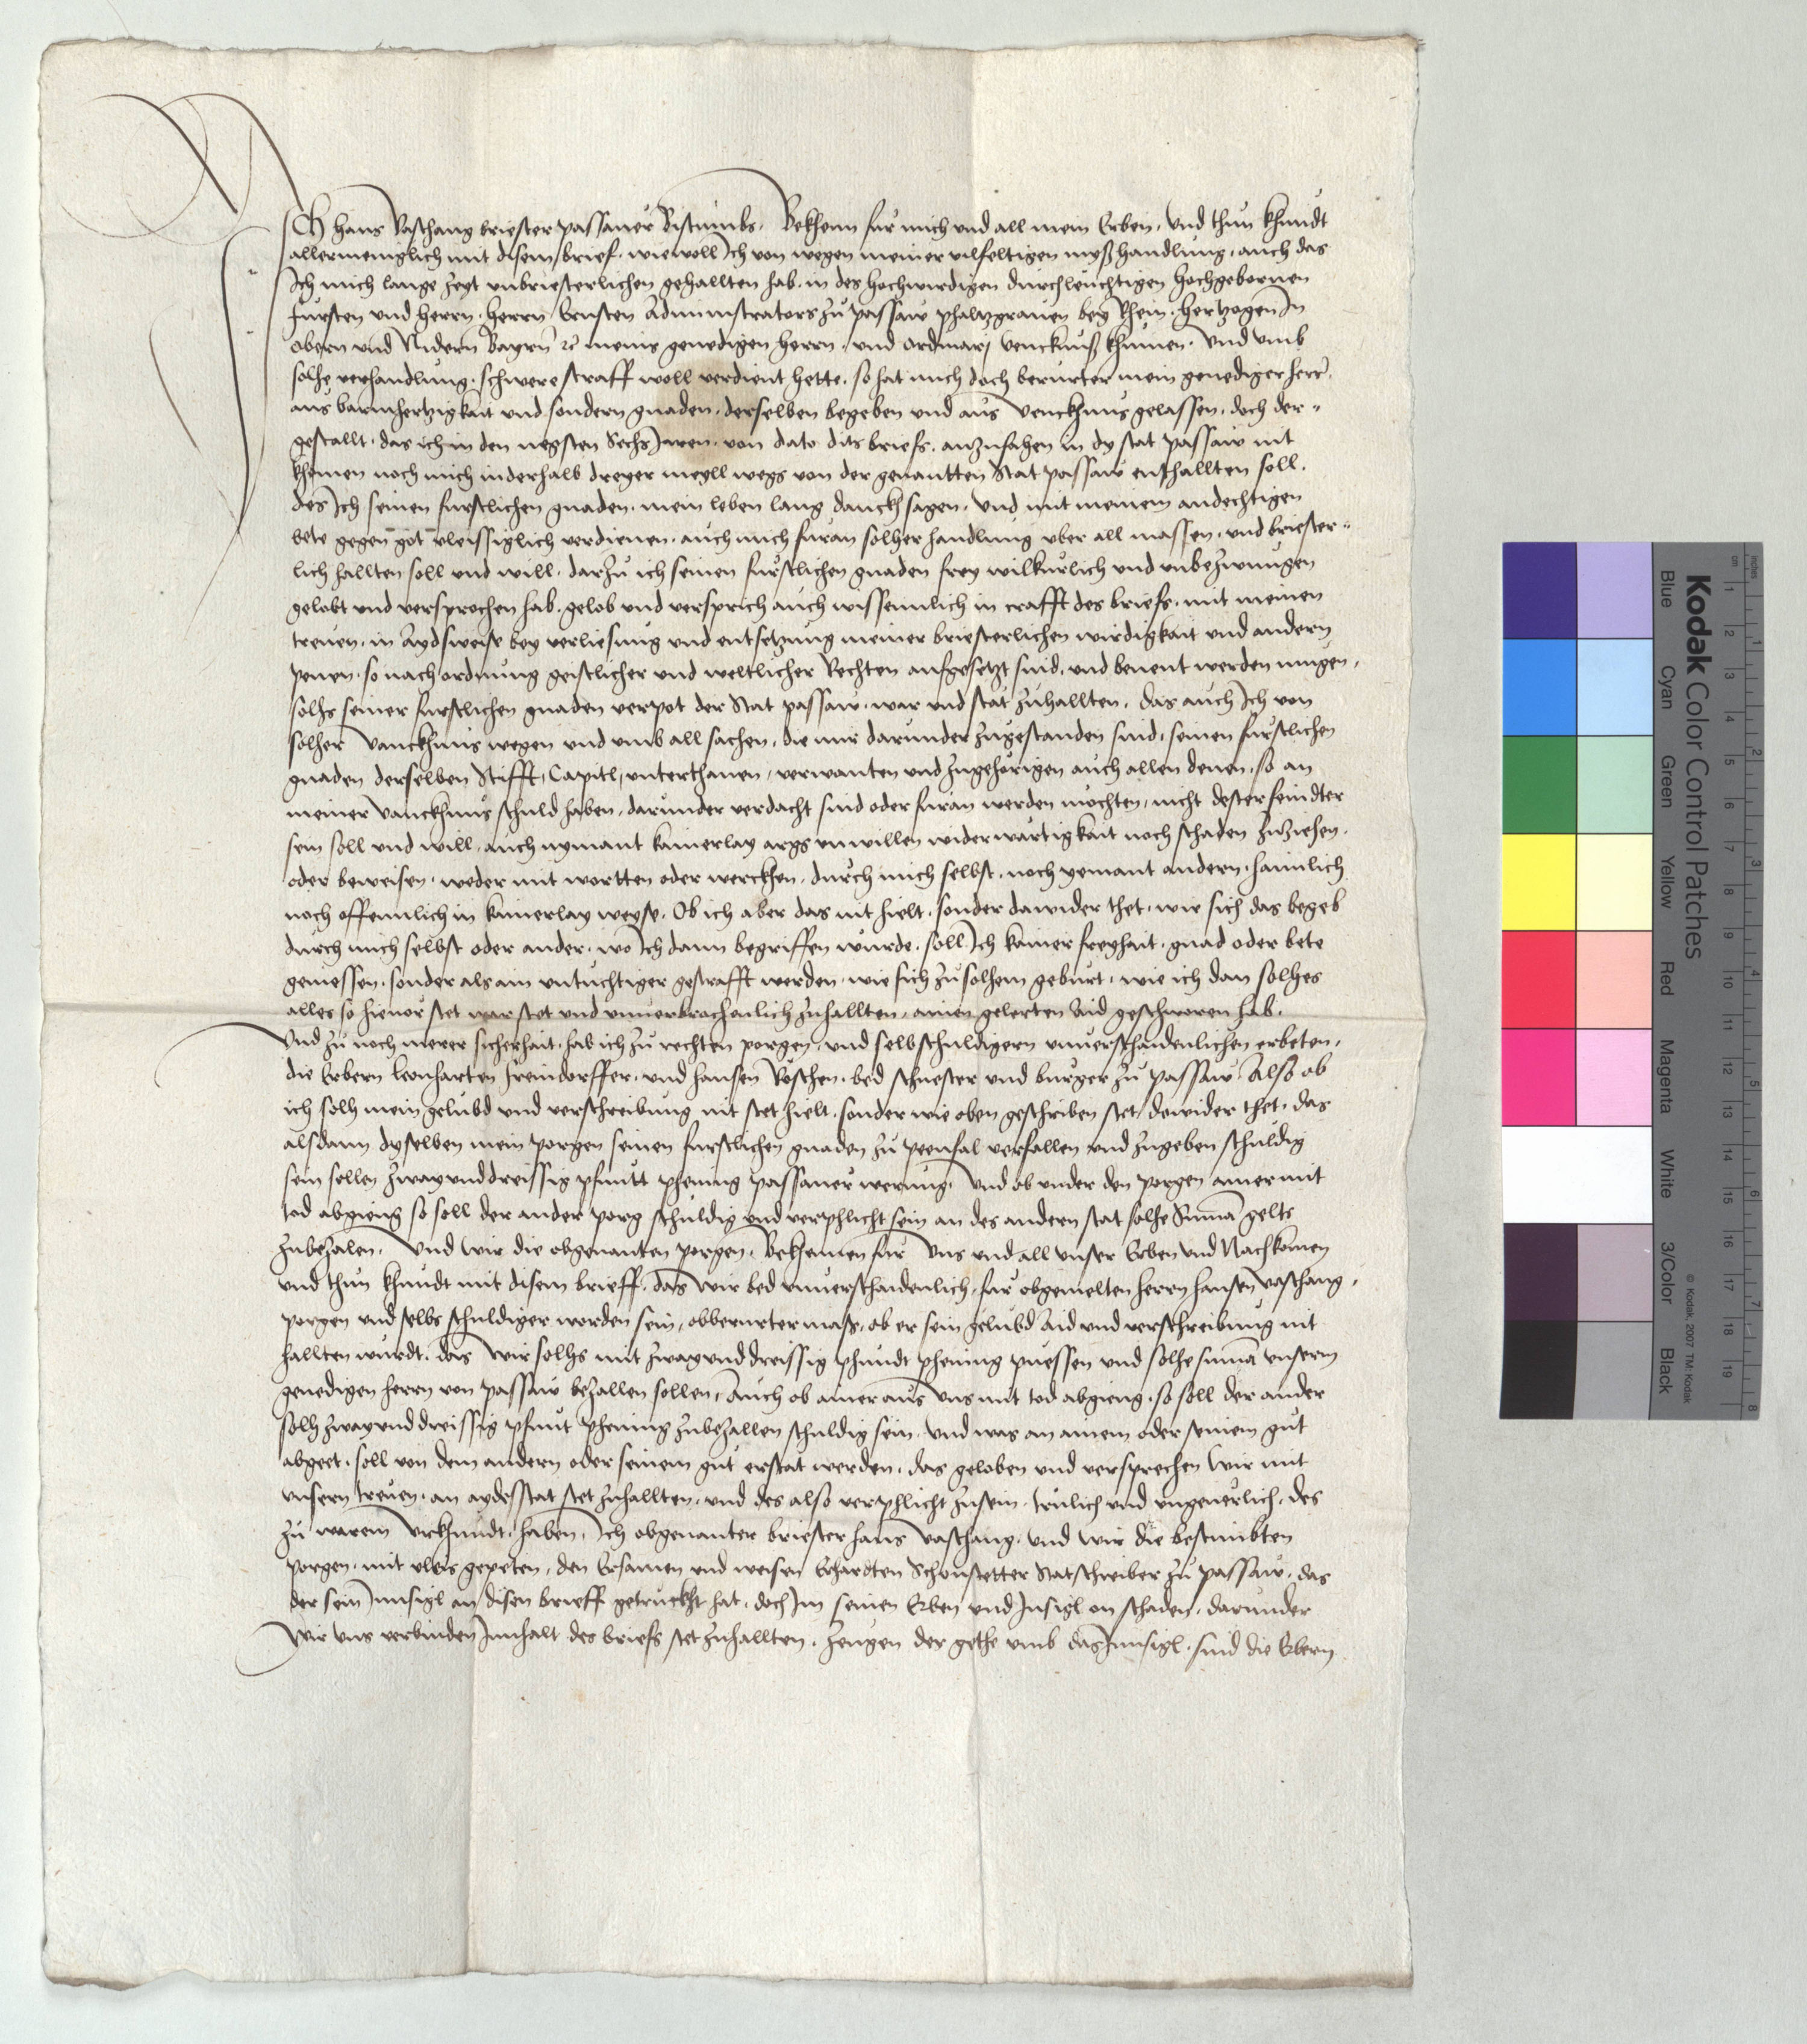 Ich hanns Vaschang briester passauer Bistumbs. Bekhenn fur mich und all mein Erben. Und thun khundt
allermeniglich mit disem brief. wiewoll Ich von wegen meiner vilfeltigen myßhandlung. auch das
Ich mich lange zeyt unbriesterlichen gehallten hab. in des hochwirdigen durchleuchtigen hochgebornen
fursten und herrn. herrn Ernsten Administrators zu passaw phaltzgraven bey Rhein. hertzogen In
obern und Nidern Bayrn etc meins genedigen herrn. und ordinarj venckhnuß khumen. Und umb
solhe verhandlung. schwere straff woll verdient hette. so hat mich doch berurter mein genediger herr.
aus barmhertzigkait und sondern gnaden. derselben begeben und aus Venckhnus gelassen. doch der-
gestallt. das ich in den negsten Sechs Jaren. von dato dits briefs. anzufahen in dy stat passaw nit
khomen noch mich inderhalb dreyer meyll wegs von der genantten Stat passaw enthallten soll.
des Ich seinen furstlichen gnaden. mein leben lang danckh sagen. Und mit meinem andechtigen
bete gegen got vleissiglich verdienen. auch mich furan solher handlung uber all massen. und briester-
lich hallten soll und will. darzu ich seinen furstlichen gnaden frey wilkurlich und unbezwungen
gelobt und versprochen hab. gelob und versprich auch wissenntlich in crafft des briefs. mit meinen
treuen. in Aydsweise bey verliesung und entsetzung meiner briesterlichen wirdigkait und andern
penen. so nach ordnung geistlicher und weltlicher Rechten aufgesetzt sind. und benent werden mugen.
solhs seiner furstlichen gnaden verpot der Stat passaw. war und stat zuhallten. das auch Ich von
solher Vanckhnus wegen und umb all sachen. die mir darunder zugestanden sind. seinen furstlichen
gnaden derselben Stifft, Capitl, unterthanen, verwanten und zugehorigen auch allen denen. so an
meiner Vanckhnus schuld haben. darunder verdacht sind oder furan werden mochten, nicht dester feindter
sein soll und will. auch nymant kainerlay args unwillen widerwartigkait noch schaden zuziehen.
oder beweisen. weder mit wortten oder werckhen. durch mich selbst. noch yemant andern. haimlich
noch offennlich in kainerlay weyse. Ob ich aber das nit hielt. sonder dawider thet. wie sich das begeb
durch mich selbst oder ander. wo Ich dann begriffen wurde. soll Ich kainer freyhait. gnad oder bete
geniessen. sonder als ain untuchtiger gestrafft werden. wie sich zu solhem geburt. wie ich dan solhes
alles so hievor stet war stet und unverbrochenlich zuhallten. ainen gelerten Aid geschworen hab.
Und zu noch merer sicherhait. hab ich zu rechten porgen. und selbschuldigern unverschaidenlichen erbeten.
die Erbern Leonharten freindorffer. und hansen Röschen. bed schuester und burger zu passaw. Also ob
ich solh mein gelubd und verschreibung nit stet hielt. sonder wie oben geschriben stet dawider thet. das
alsdann dyselben mein porgen seinen furstlichen gnaden zu peenfal verfallen und zugeben schuldig
sein sollen zwayunddreissig pfunt phening passauer werung. Und ob under den porgen ainer mit
tod abgieng so soll der ander porg schuldig und verphlicht sein an des andern stat solhe Suma gelts
zubezalen. Und wir die obgenanten porgen. Bekhennen fur Uns und all unser Erben und Nachkomen
und thun khundt mit disem brieff. das wir bed unverschaidenlich. fur obgemelten herrn hansen vaschang.
porgen und selbs schuldiger worden sein. obberurter mass. ob er sein gelubd Aid und verschreibung nit
hallten wurdt. das wir solhs mit zwayunddreissig phundt phening puessen und solhe suma unserm
genedigen herrn von passaw bezallen sollen. Auch ob ainer aus Uns mit tod abgieng. so soll der ander
solh zwayunddreissig pfunt phening zubezallen schuldig sein. und was an ainem oder seinem gut
abgeet. soll von dem andern oder seinem gut erstat werden. das geloben und versprechen wir mit
unsern treuen. an aydesstat stet zuhallten. und des also verphlicht zusein. trulich und ungeverlich. des
zu warem Urkhundt. haben. Ich obgenanter briester hans vaschang. und wir die bestimbten
porgen. mit vleis gepeten. den Ersamen und weisen Erhardten Schonstetter Statschreiber zu passaw. das
der sein Innsigl an disen brieff getruckht hat. doch Im seinen Erben und Insigl on schaden. darunder
wir uns verbinden Innhalt des briefs stet zuhallten. Zeugen der gethe umb das Innsigl. sind die Erbern
inches
cm
Kodak Color Control Patches
Blue
Cyan
Green
Yellow
Red
Magenta
White
3/Color
Black
© Kodak, 2007 TM: Kodak
1 2 3 4 5 6 7 8 9 10 11 12 13 14 15 16 17 18 19
1 2 3 4 5 6 7 8